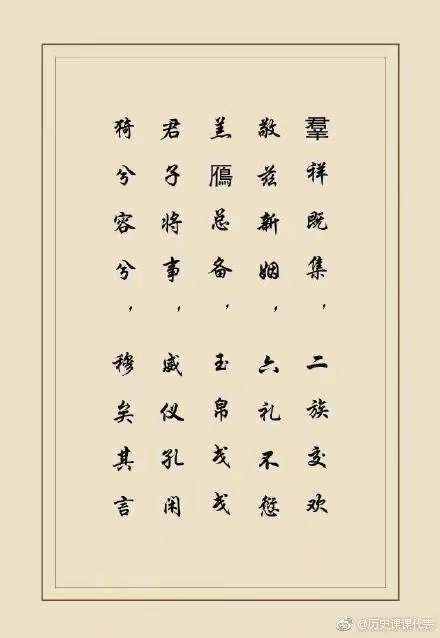 羣祥既集，二族交欢
敬兹新姻，六礼不愆
羔鴈总备，玉帛戋戋
君子将事，威仪孔闲
猗兮容兮，穆矣其言
@历史课课代表